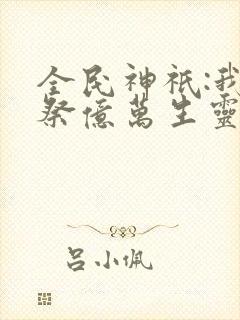 全民神祇:我
祭億萬生靈
呂小佩